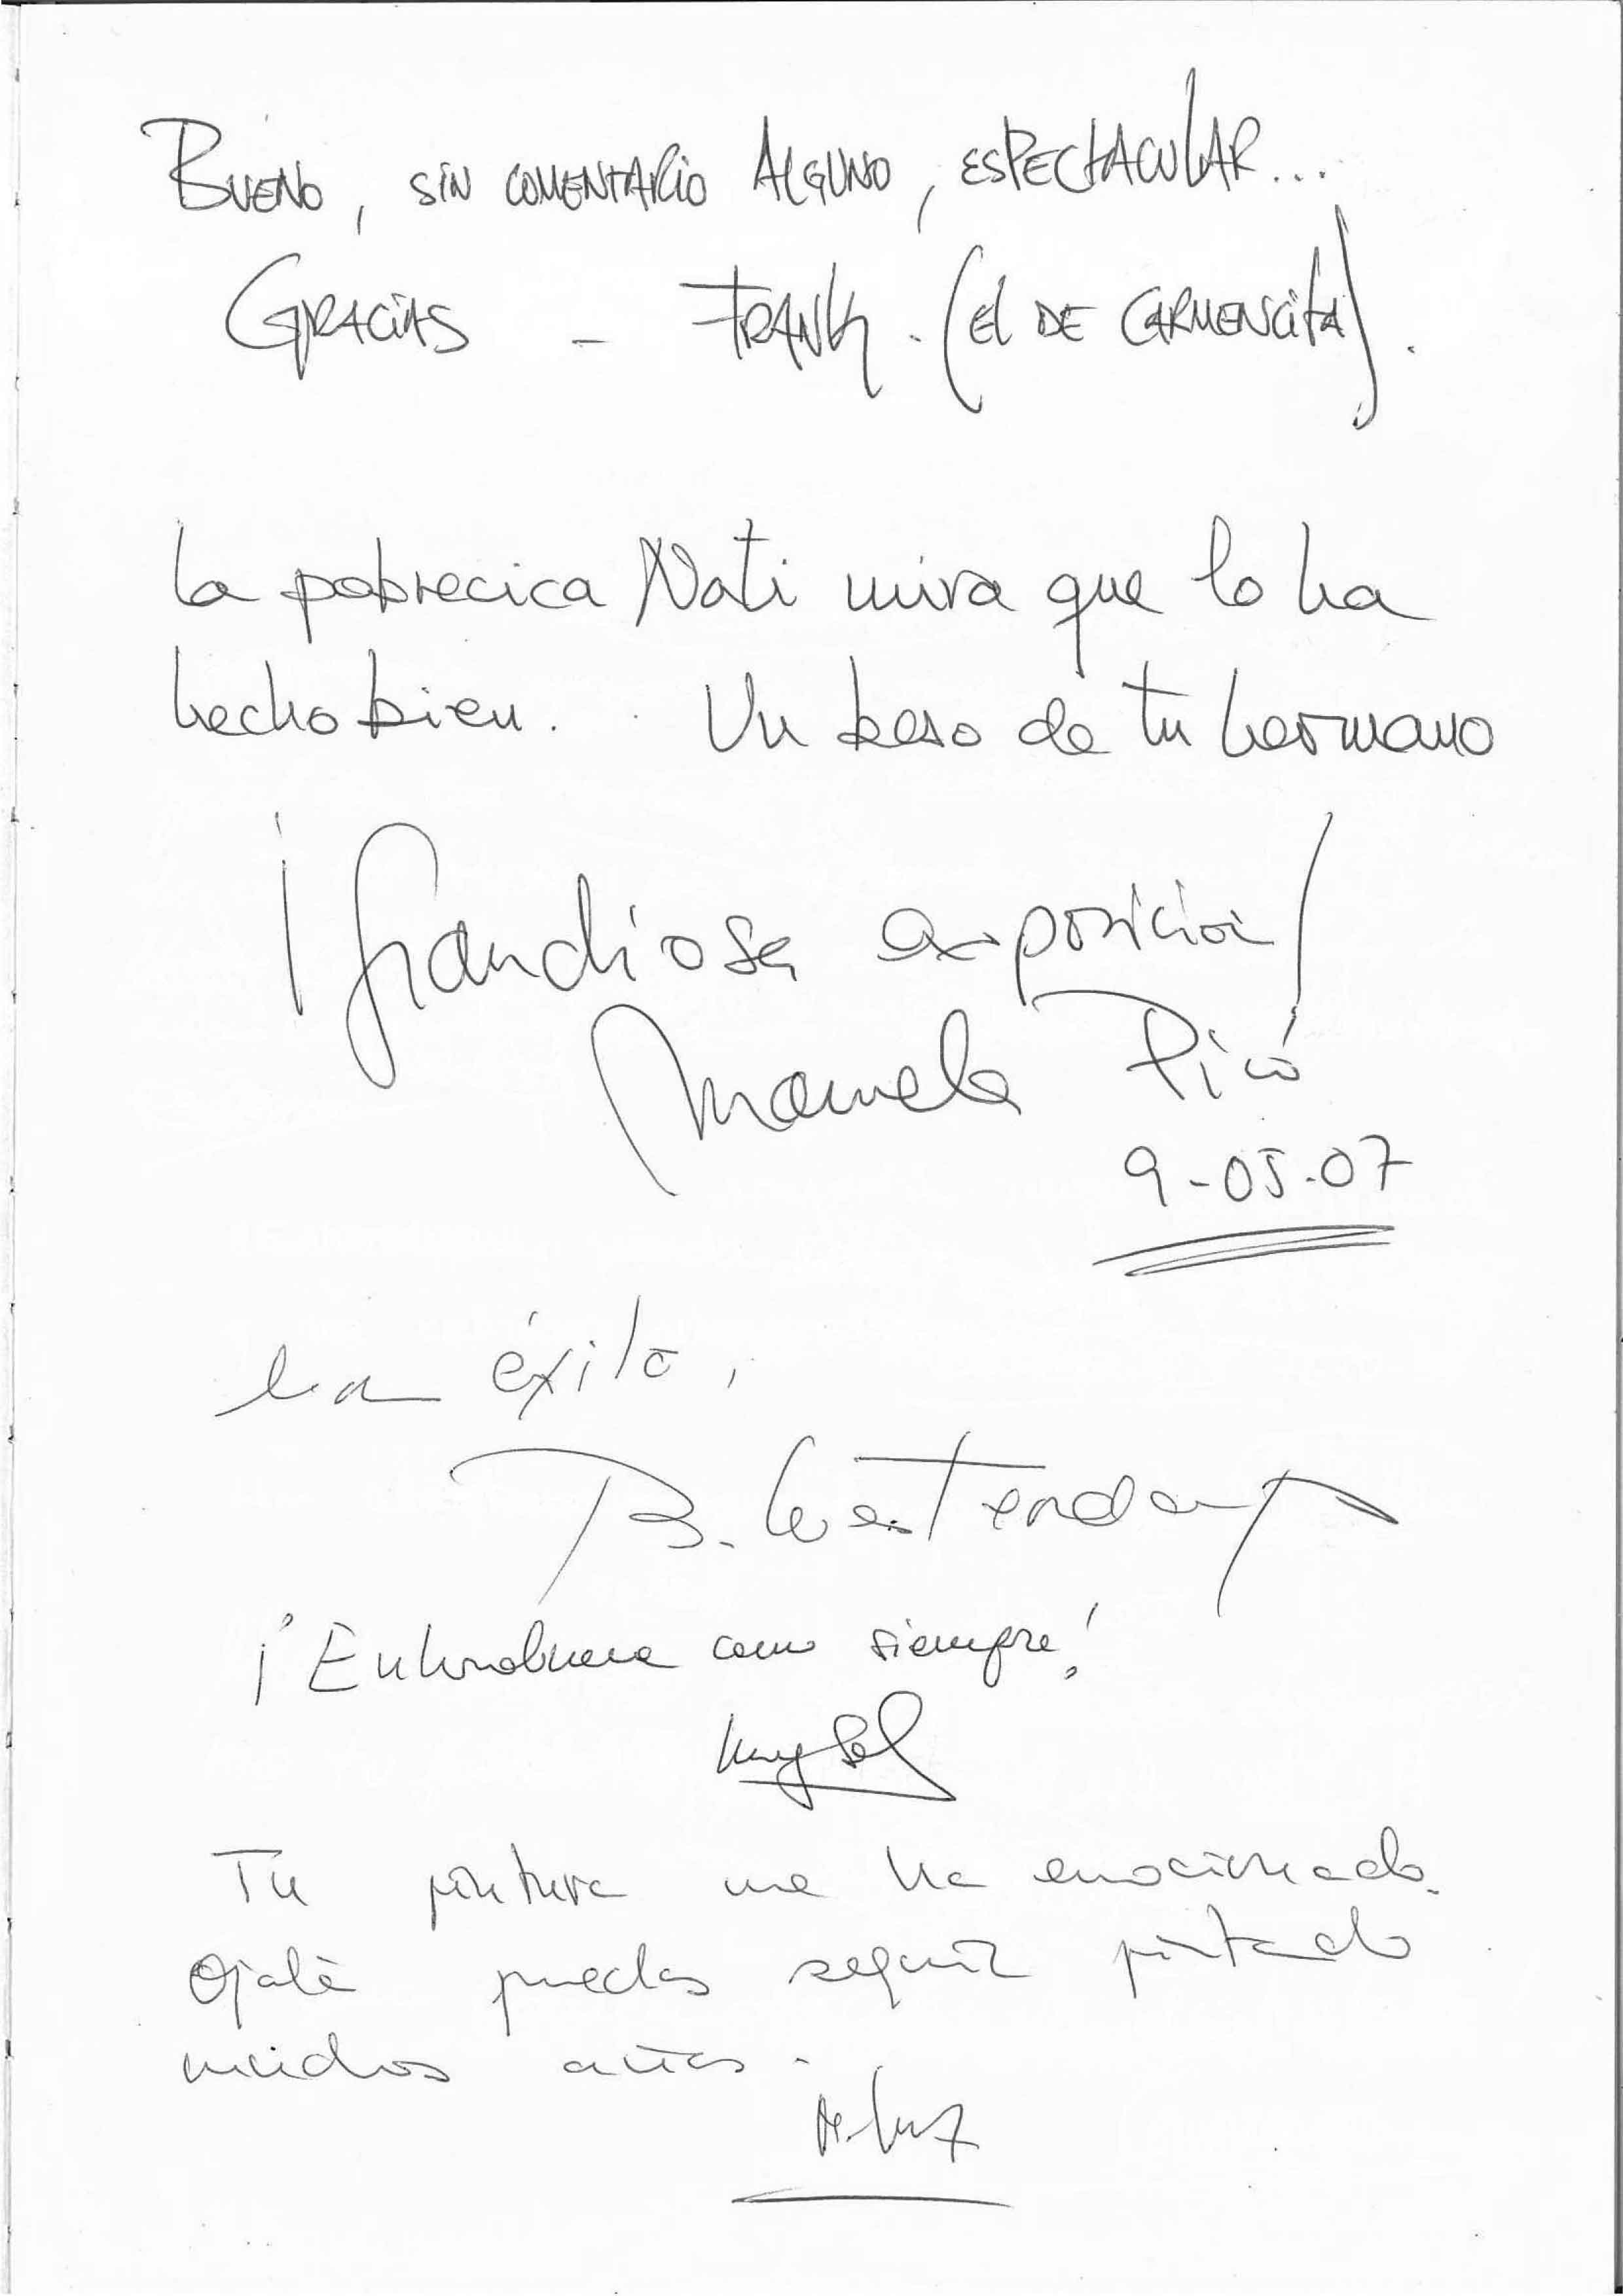 BUENO, SIN COMENTARIO ALGUNO, ESPECTACULAR...
GRACIAS - FRANK. (El DE CARMENCITA).
La pobrecica Nati mira que lo ha
hecho bien. Un beso de tu hermano
¡Grandiosa exposición!
Manuela Picó
9-05-07
un éxito,
B. Westendorp
¡Enhorabuena como siempre!
Tu pintura me ha emocionado.
Ojalá puedas seguir pintado
muchos años.
M. Luz